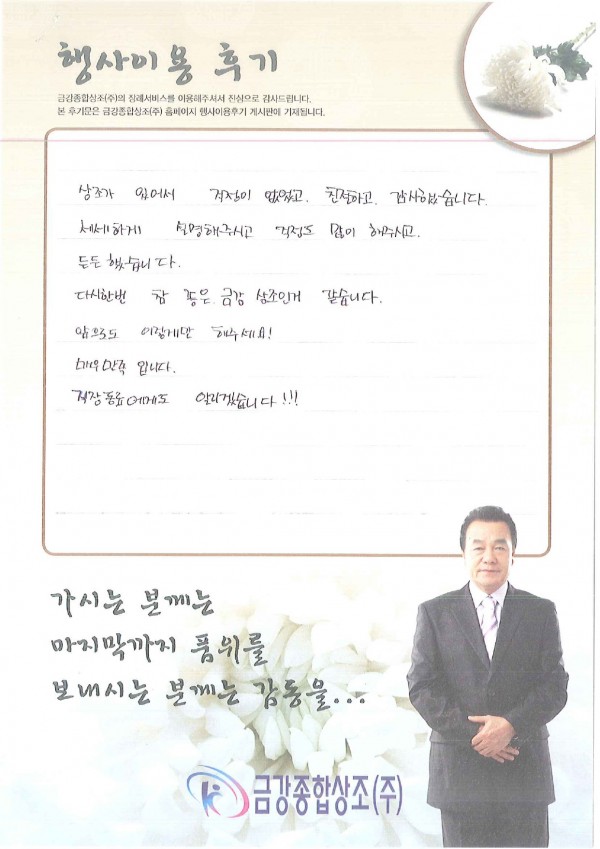 행사이용 후기
금강종합상조(주)의 장례서비스를 이용해주셔서 진심으로 감사드립니다.
본 후기문은 금강종합상조(주) 홈페이지 행사이용후기 게시판에 기재됩니다.
상조가 있어서 걱정이 없었고, 친절하고, 감사했습니다.
세세하게 설명해주시고 걱정도 많이 해주시고.
든든했습니다.
다시한번 참 좋은 금강 상조인거 같습니다.
앞으로도 이렇게만 해주세요!
매우만족 입니다.
직장동료에게도 알리겠습니다!!!
가시는 분께는
마지막까지 품위를
보내시는 분께는 감동을...
금강종합상조(주)